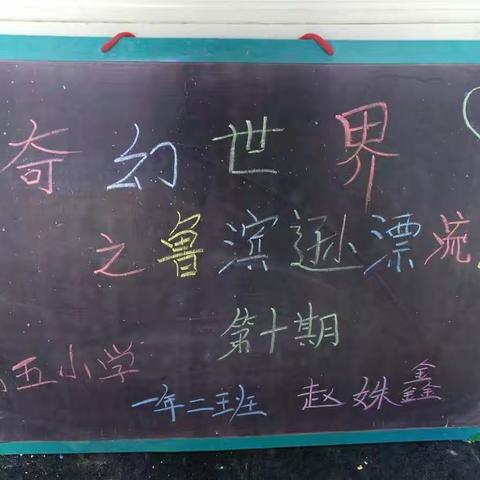 奇幻世界
之鲁滨逊漂流
第十期
五小学
一年二班 赵姝鑫